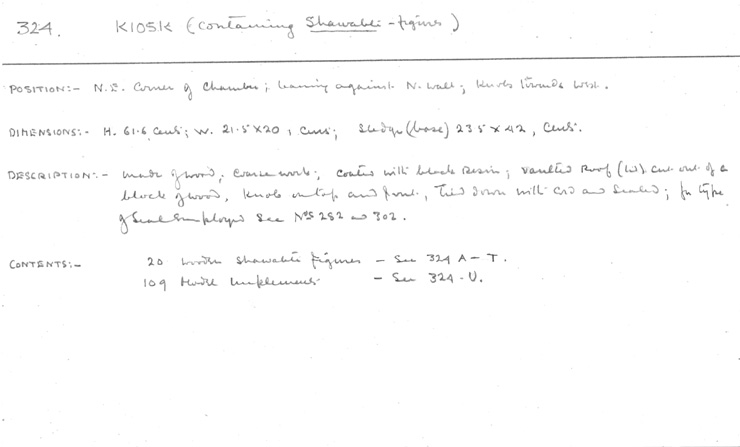 324. KIOSK (containing Shawabti-figures)
POSITION:- N.E. Corner of Chamber; leaning against N. wall; knobs towards West.
DIMENSIONS:- H. 61.6 cens; W. 21.5 x 20, cens; Sledge (base) 23.5 x 42, cens.
DESCRIPTION:- made of wood, coarse work; coated with black resin; vaulted roof (lid) cut out of a
block of wood, knobs on top and front, tied down with cord and sealed; for type
of seal employed see Nos 282 and 302.
CONTENTS:- 20 wooden shawabti figures - See 324 A-T.
109 model implements - See 324-U.